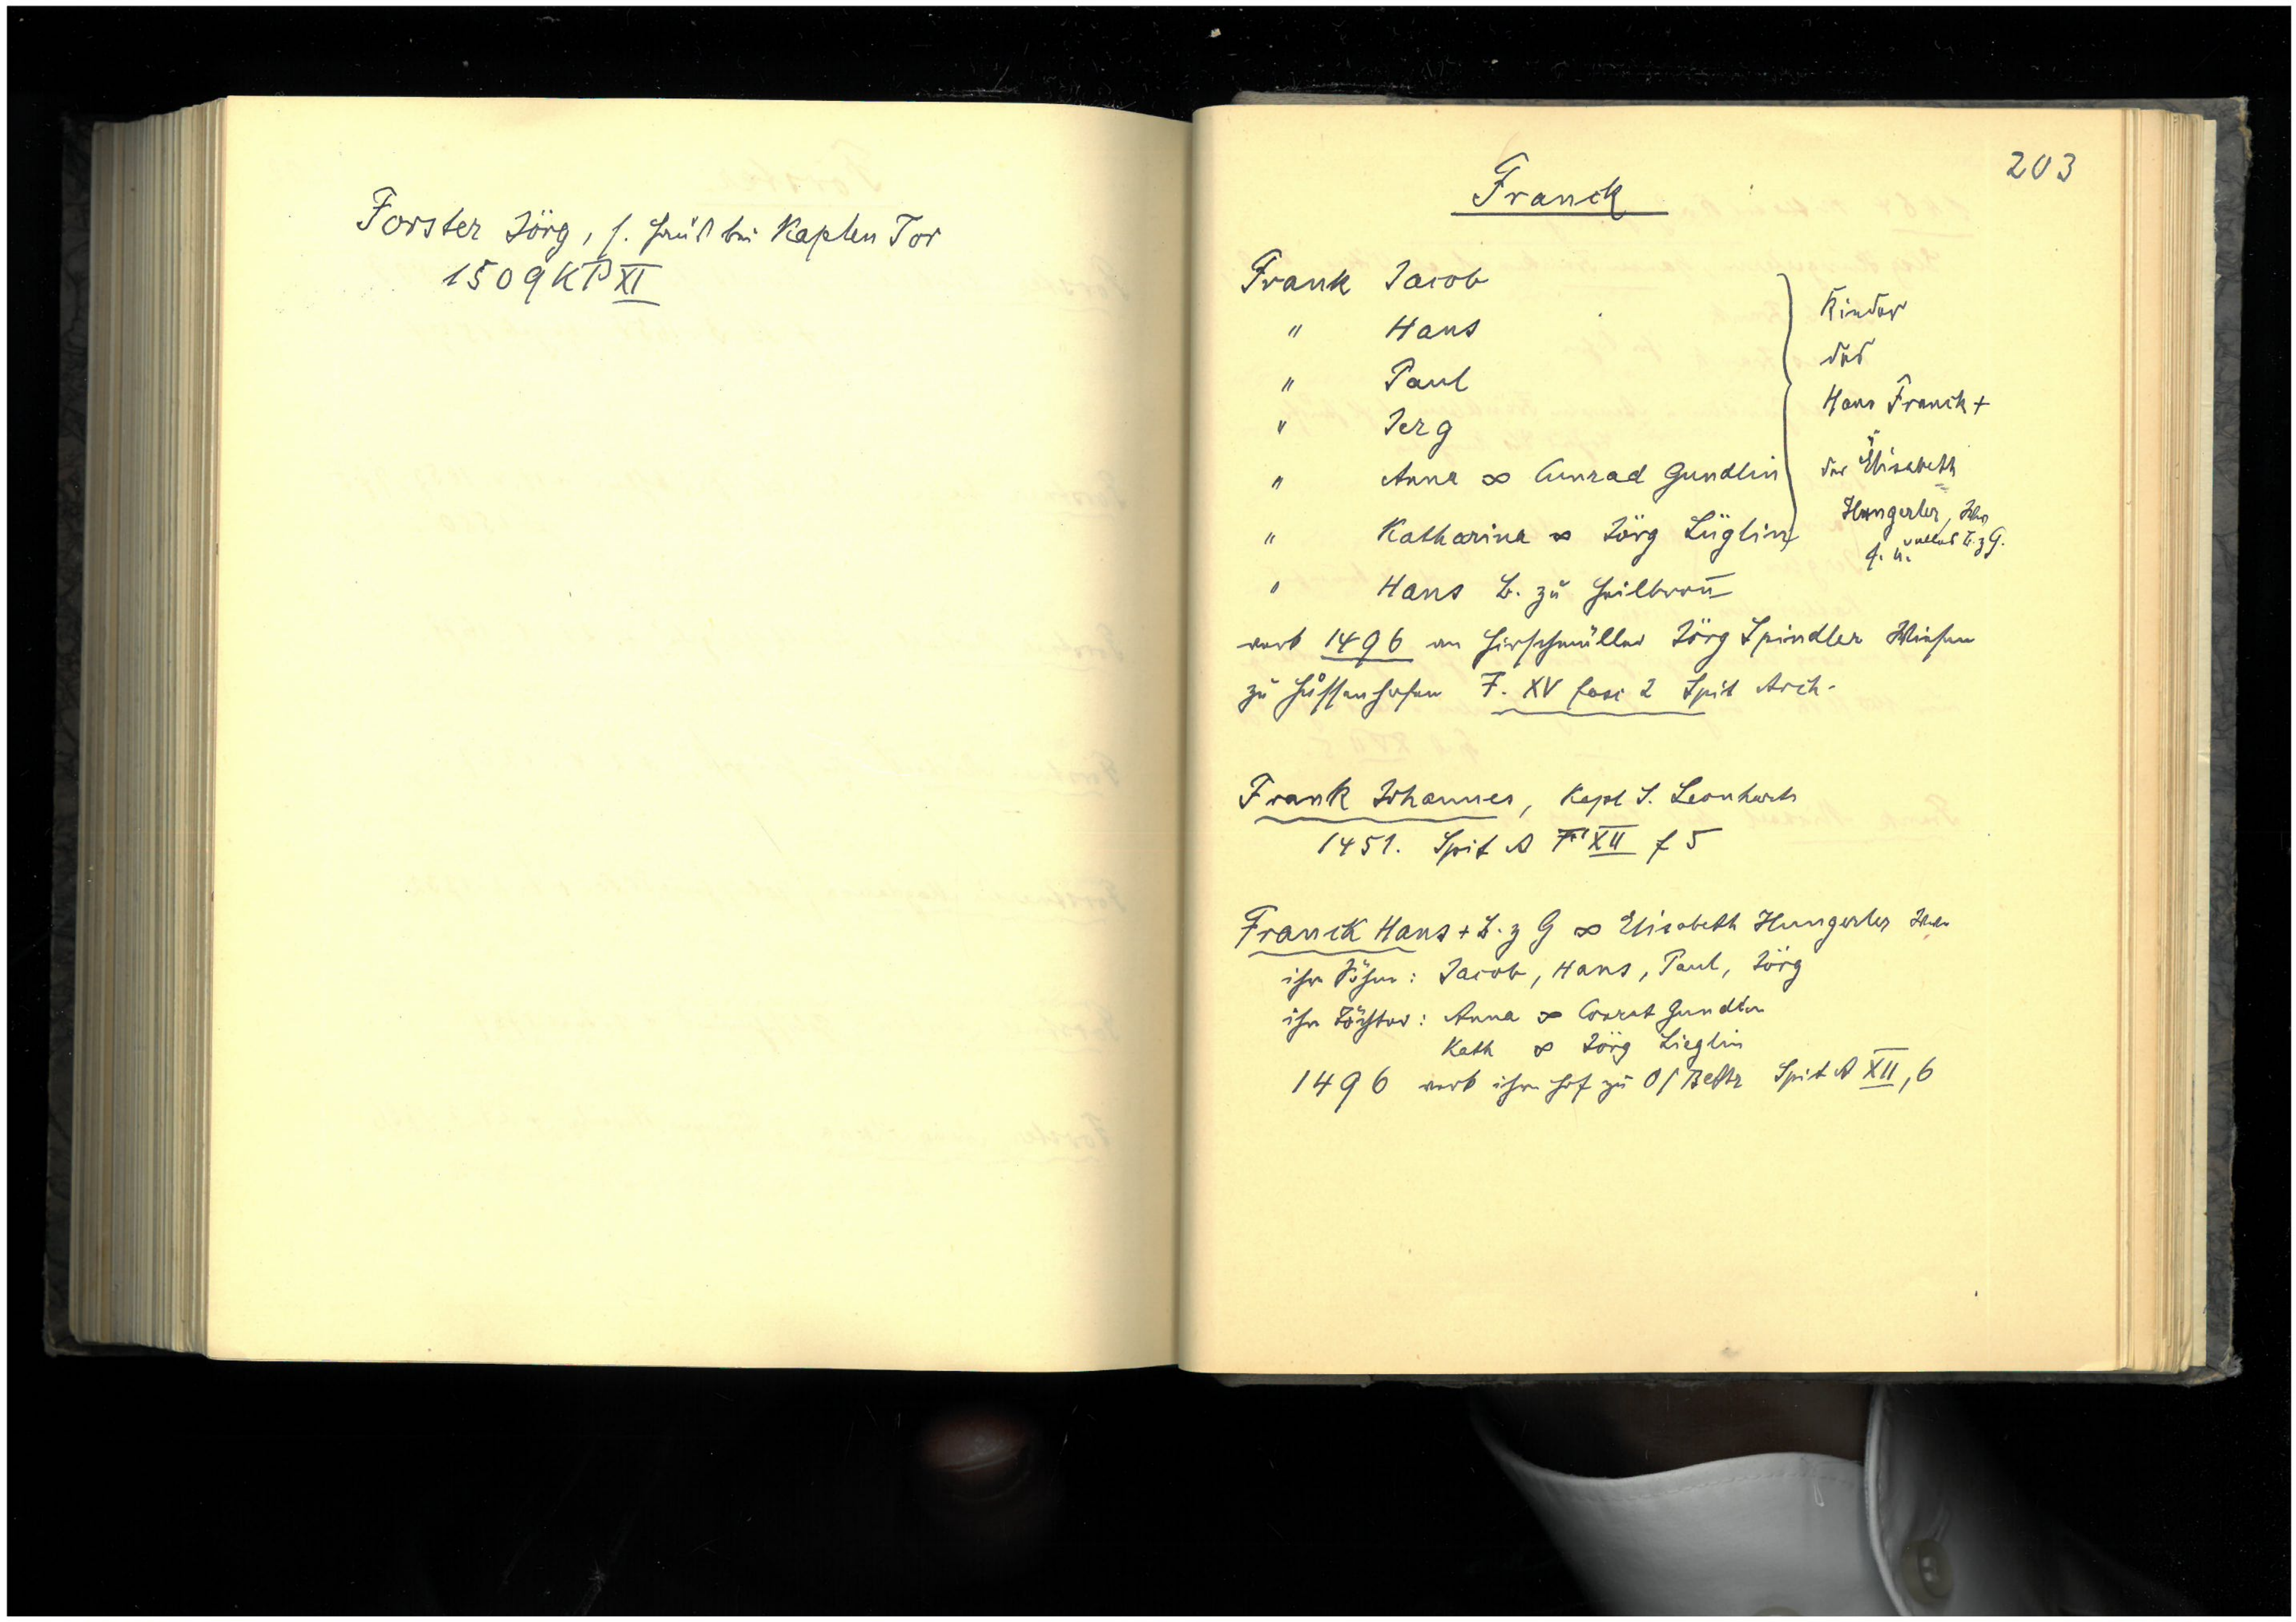 Forster Jörg, s. Haus bei Kaplen Tor
1509 KP XI
203
Franck
Frank Jacob
" Hans
" Paul
" Jerg
" Anna ∞ Cunrad Gundlin
" Katharina ∞ Jörg Lüglin
" Hans B. zu Heilbron̄
Kinder
des
Hans Franck +
u
der Elisabeth
Hungerler,
B. z G.
verk 1496 an Hirschmüller Jörg Spindler Wiesen
zu Hussenhofen F. XV fasc 2 Spit Arch.
Frank Johannes, Kapl S. Leonhards
1451. Spit A F XII f 5
Franck Hans + B. z G ∞ Elisabeth Hungerler
ihre Söhne: Jacob, Hans, Paul, Jörg
ihre Töchter: Anna ∞ Conrat Gundlin
Kath ∞ Jörg Lieglin
1496 verk ihren Hof zu O/Bettr Spit A XII, 6